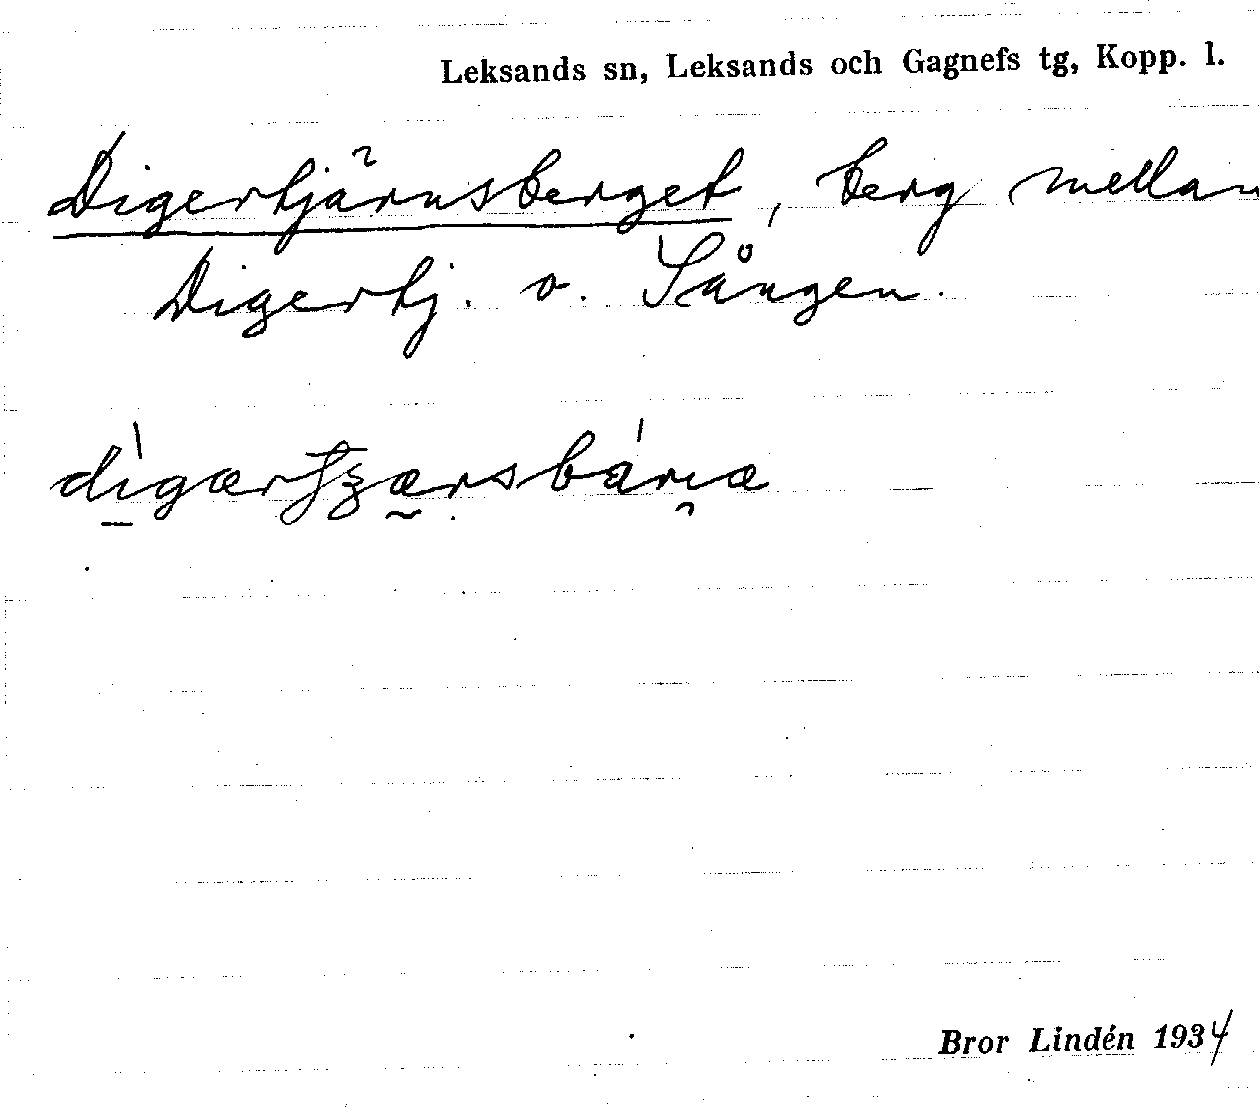 Leksands sn, Leksands och Gagnefs tg, Kopp. l.
Digertjärnsberget, berg mellan
Digertj. o. Sången.
Bror Lindén 1934